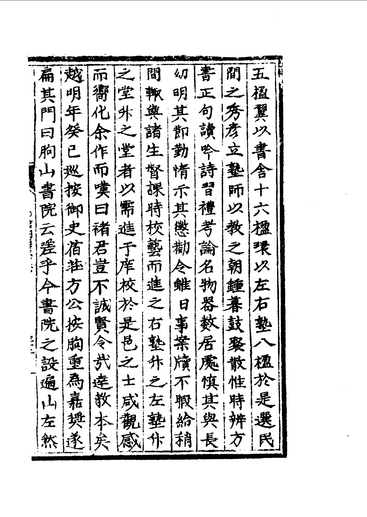 五楹翼以書舍十六楹環以左右塾八楹於是選民
間之秀彥立塾師以教之朝鍾暮鼓聚散惟時辨方
書正句讀吟詩習禮考論名物器数居處慎其與長
幼明其節勤惰示其懲勸令雖日事案牘不暇給稍
間輙與諸生督課時校藝而進之右塾升之左塾升
之堂升之堂者以需進于庠校於是邑之士咸觀感
而嚮化余作而嘆曰褚君豈不誠賢令哉達教本矣
越明年癸巳巡按御史信莊方公按朐重為嘉奬遂
扁其門曰朐山書院云嗟乎今書院之設遍山左然